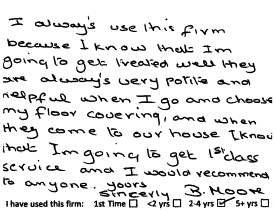 I always use this firm
because I know that Im
going to get treated well they
are always very polite and
helpful when I go and choose
my floor covering, and when
they come to our house I know
that Im going to get 1st class
service and I would recommend
to anyone. yours
sincerly B. Moore
I have used this firm: 1st Time ☐ <2 yrs ☐ 2-4 yrs ☑ 5+ yrs ☐